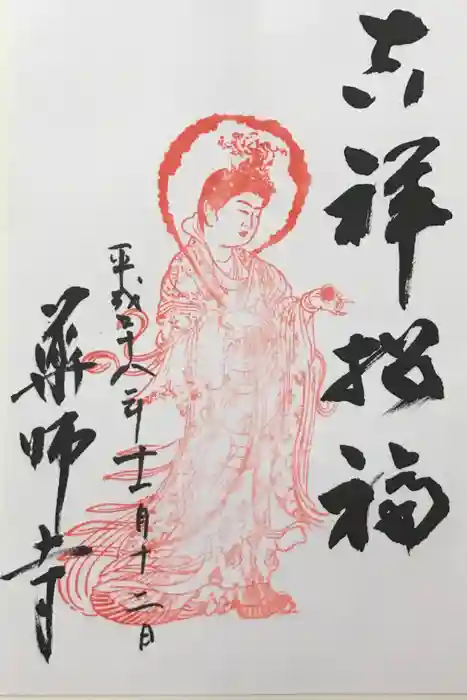 吉祥招福
平成二十八年十二月十二日
薬師寺